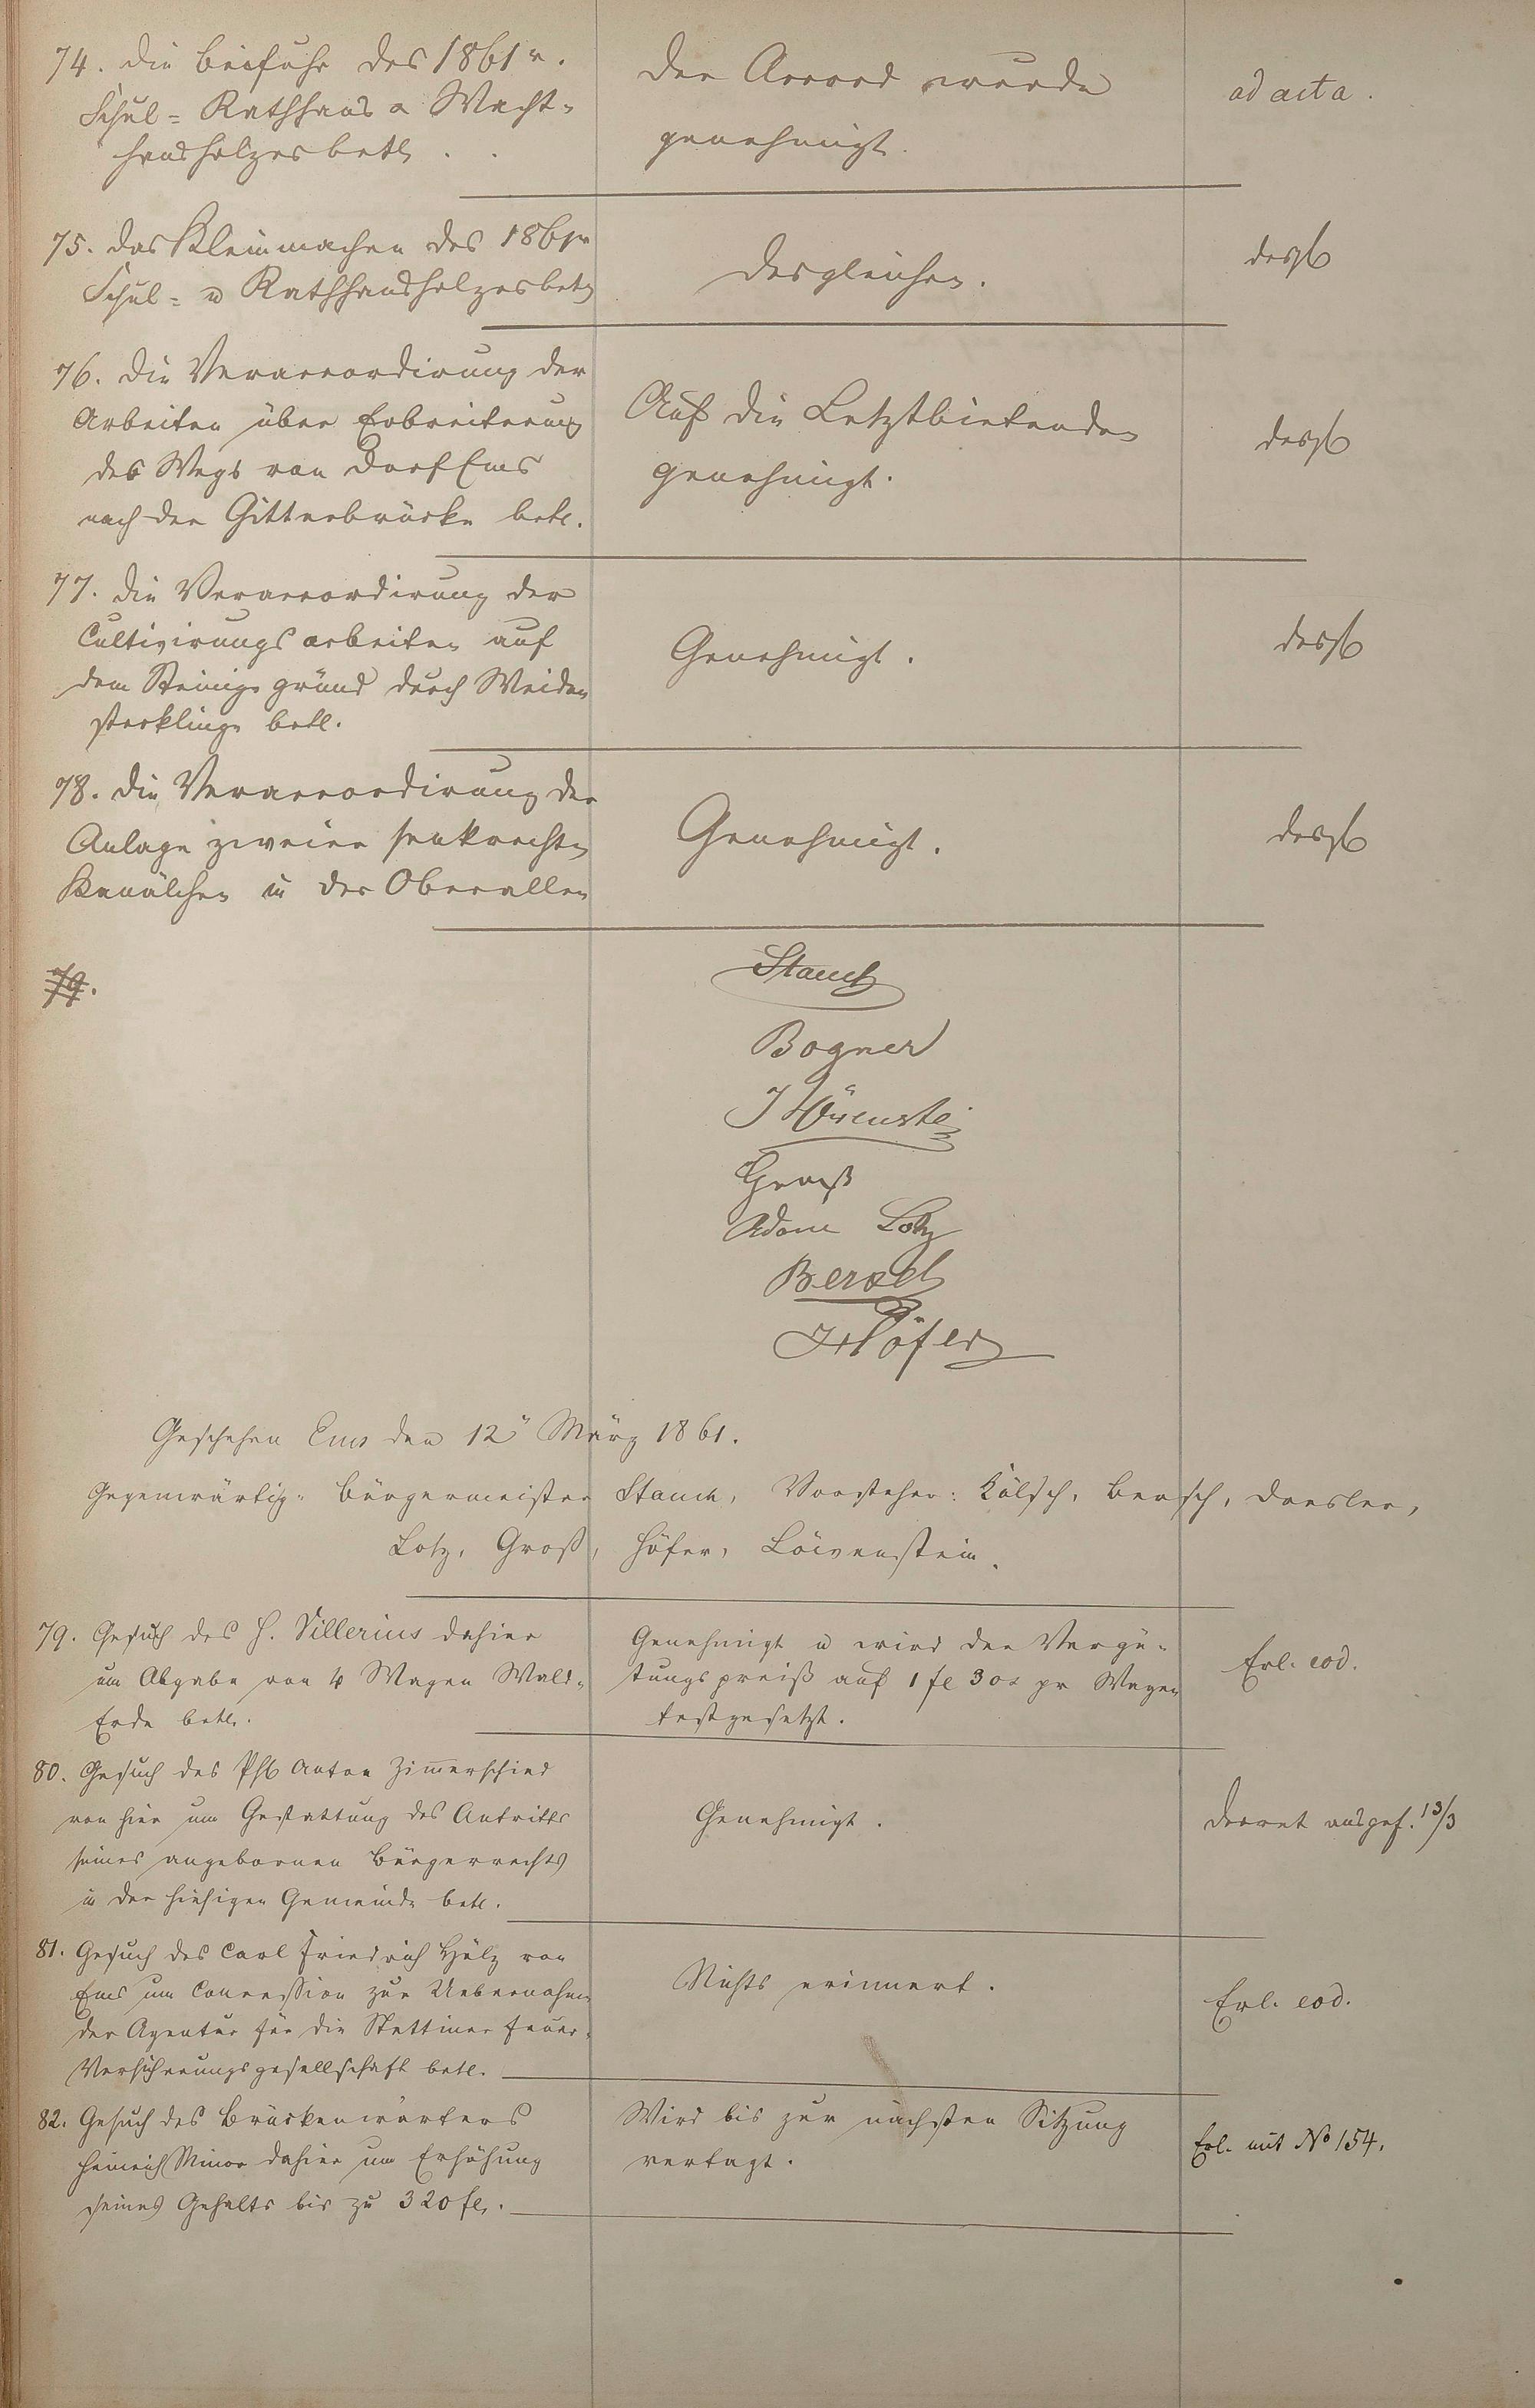 74. Die Beifuhr des 1861r.
Schul- Rathhaus u Wacht-
haushholzes betr. . .
Der Accord wurde
genehmigt.
ad acta.
75. Das Kleinmachen des 1861r
Schul- u Rathhausholzes betr
desgleichen.
desgl
76. Die Veraccordirung der
Arbeiten über Erbreiterung
des Wegs von Dorf Ems
nach der Gitterbrücke betr.
Auf die Letztbietenden
genehmigt.
desgl
77. Die Veraccordirung der
Cultivirungsarbeiten auf
dem Steinigs gründ durch Weiden
stecklinge betr.
Genehmigt.
desgl
78. Die Veraccordirung der
Anlage zweier senkrechten
Kanälchen in der Oberallen
Genehmigt.
desgl
79.
Stauch
Bogner
J Löwenstein
Groß
Adam Lotz
Bersch
Höfer
Geschehen Ems den 12n März 1861.
Gegenwärtig: Bürgermeister Stauch, Vorsteher: Kölsch, Bersch, Dresler,
Lotz, Groß, Höfer, Löwenstein.
79. Gesuch des H. Villerius dahier
um Abgabe von 4 Wagen Wald-
Erde betr.
Genehmigt u wird der Vergü-
tungspreiß auf 1 fl 30x pr Wagen
festgesetzt.
Erl. eod.
80. Gesuch des Phl Anton Zimerschied
von hier um Gestattung des Antritts
seines angebornen Bürgerrechts
in der hiesigen Gemeinde betr.
Genehmigt.
Decret ausgef. 13/3
81. Gesuch des Carl Friedrich Hölz von
Ems um Concession zur Uebernahme
der Agentur für die Stettiner Feuer-
Versicherungsgesellschaft betr.
Nichts erinnert.
Erl. eod.
82. Gesuch des Brückenwärters
Heinrich Minor dahier um Erhöhung
seines Gehalts bis zu 320 fl.
Wird bis zur nächsten Sitzung
vertagt.
Erl. mit No 154.